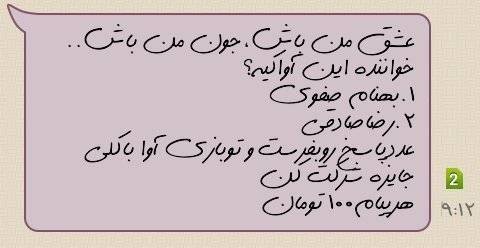 عشق من باش، جون من باش..
خواننده این آوا کیه؟
۱.بهنام صفوی
۲.رضا صادقی
عدد پاسخ رو بفرست و تو بازی آوا با کلی
جایزه شرکت کن
هر پیام ۱۰۰ تومان
2
۹:۱۲